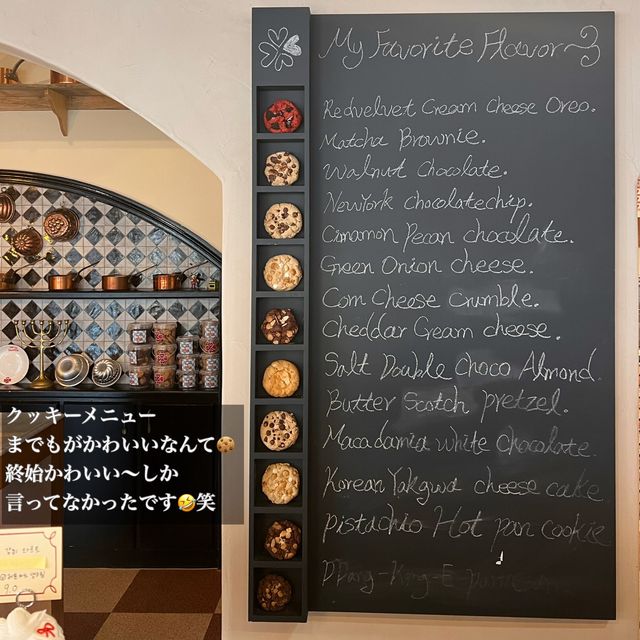 My Favorite Flavor~
Redvelvet Cream Cheese Oreo.
Matcha Brownie.
Walnut Chocolate.
Newyork chocolatechip.
Cinnamon Pecan chocolate.
Green Onion cheese.
Corn Cheese Crumble.
Cheddar Cream cheese.
Salt Double Choco Almond.
Butter Scotch pretzel.
Macadamia white Chocolate.
Korean Yakgwa cheese cake
pistachio Hot pan cookie
クッキーメニュー
までもがかわいいなんて🍪
終始かわいい〜しか
言ってなかったです🤣笑